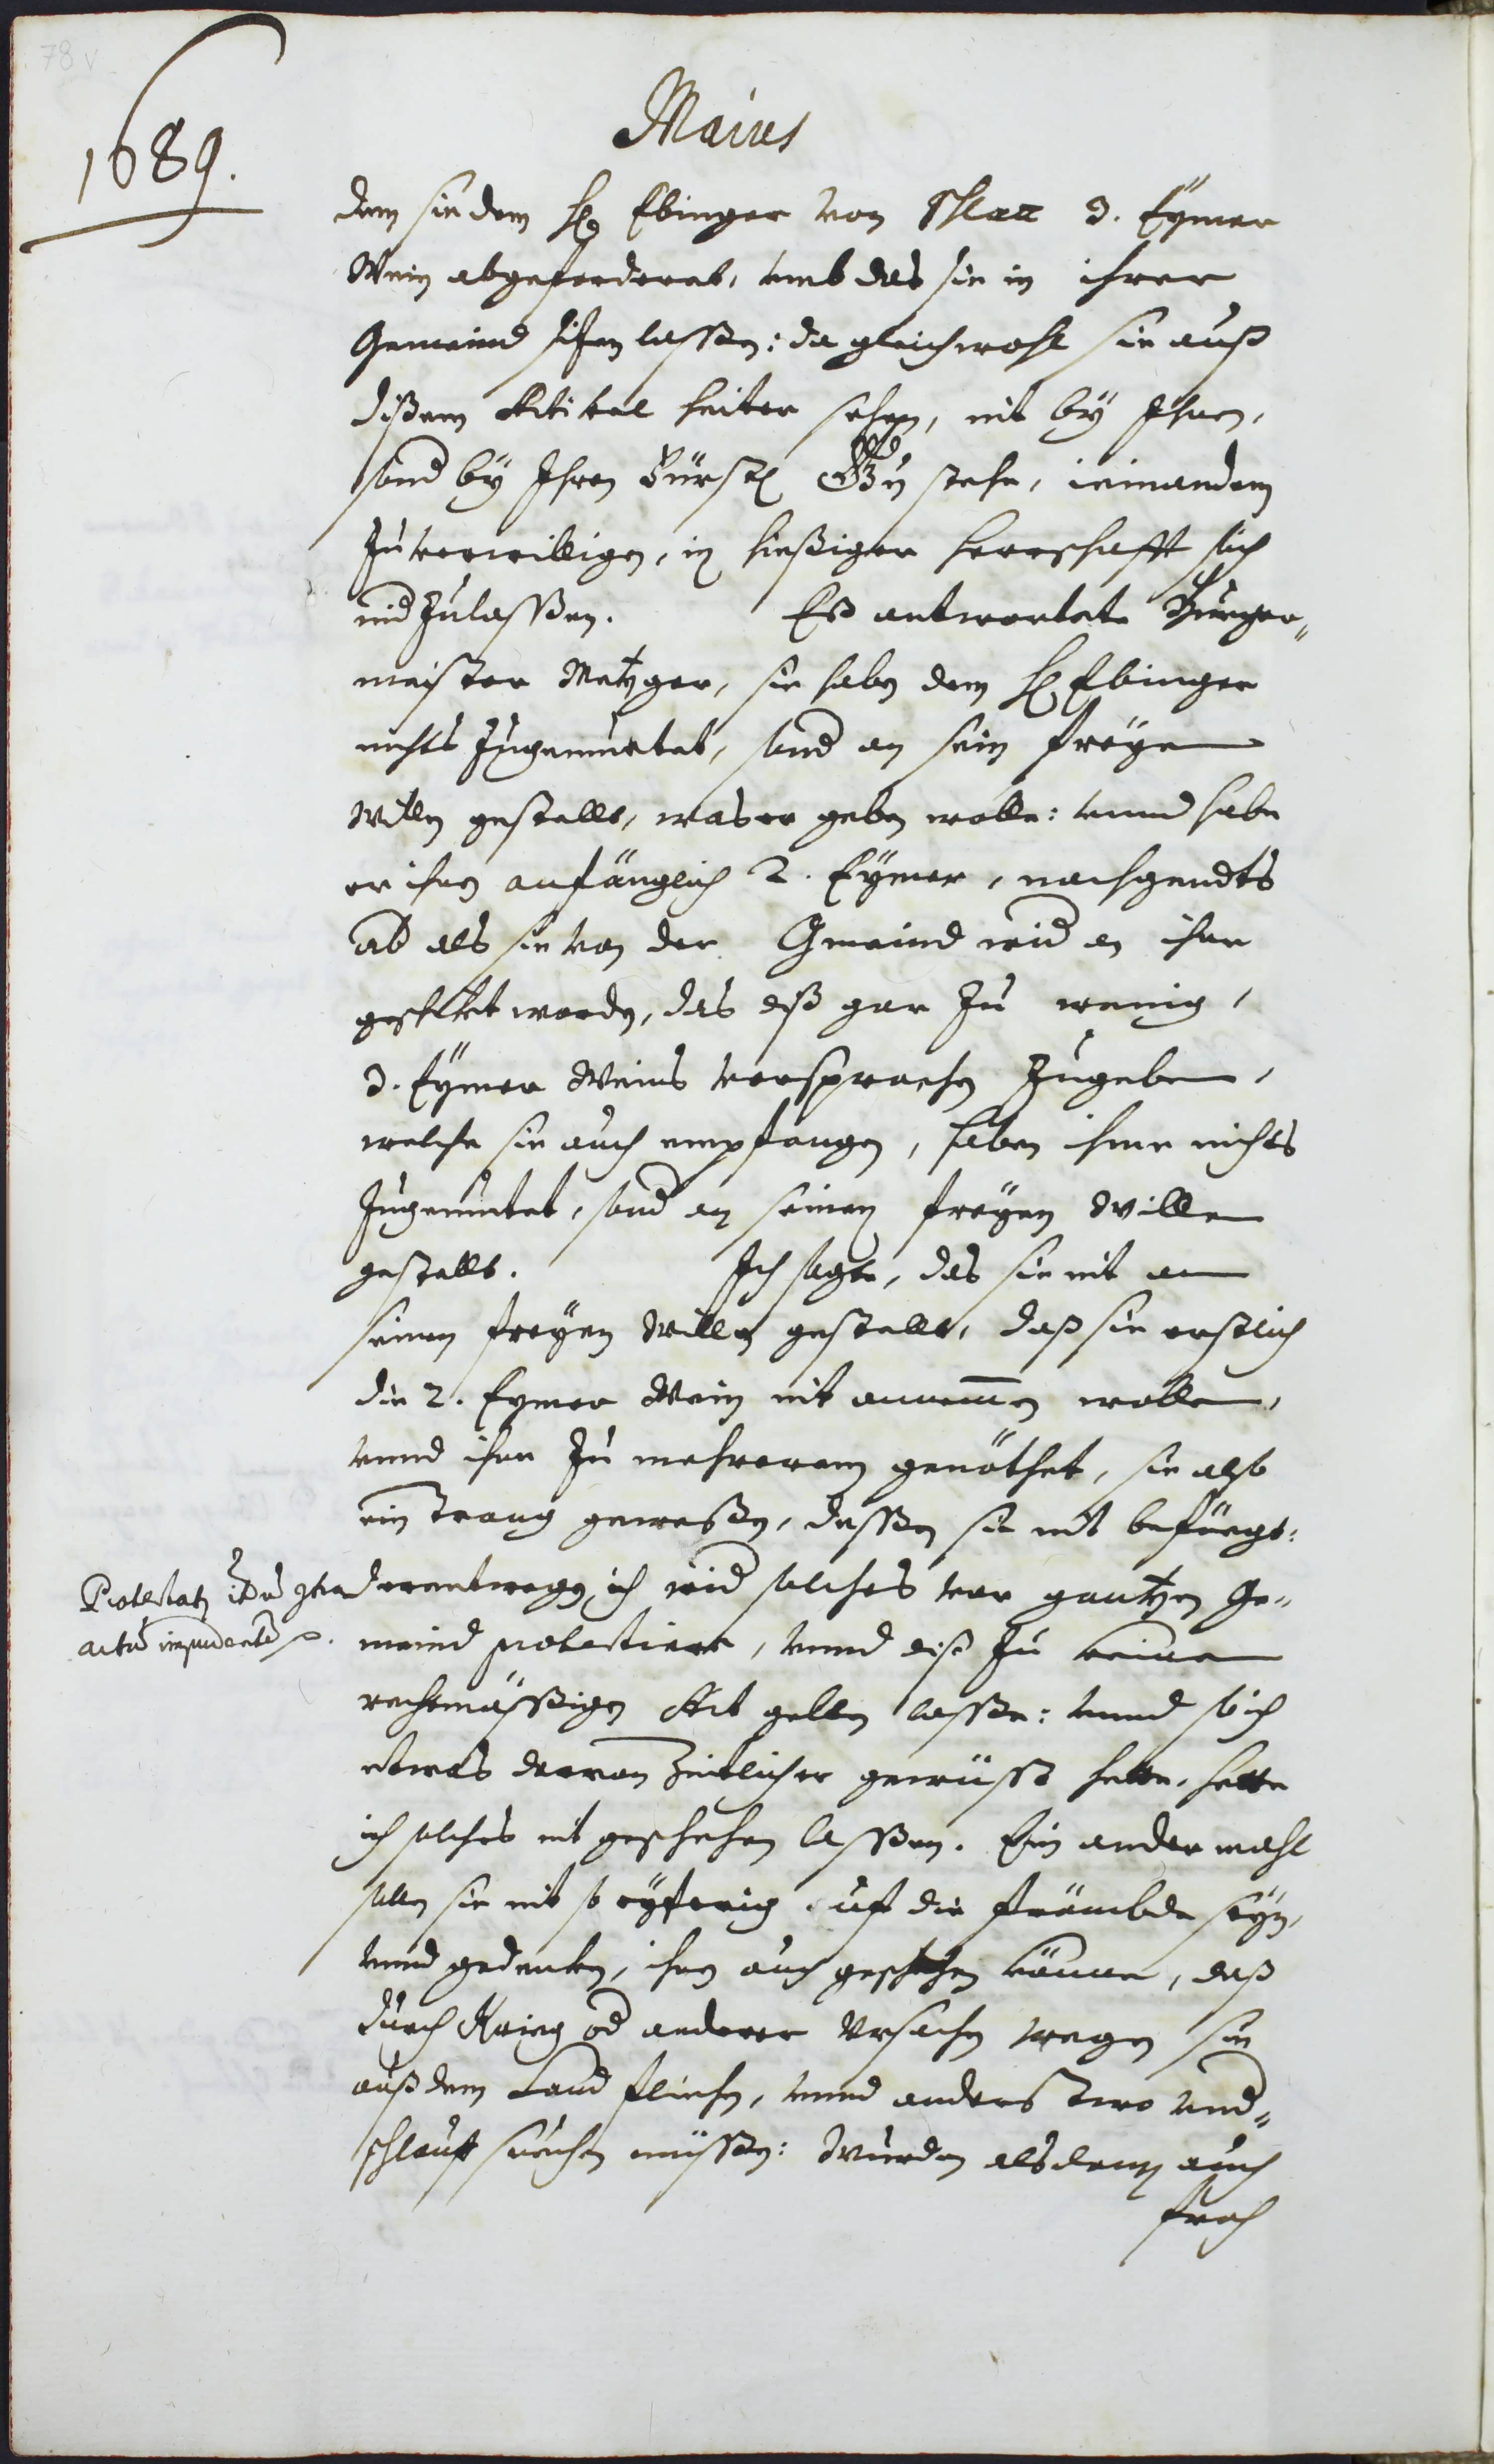 78 v
1689.
Maius
dem sie dem H. Ebinger von Schlatt 3. Eÿmer
Wein abgeforderet, umb das sie in ihrer
Gemeind sitzen lassen: da gleichwohl sie auß
disem Articul heiter sehen, nit bÿ Ihnen,
sond bÿ Ihro Fürstl. Gn stehe, iemanden
zuverwilligen, in hießiger Herrschafft sich
nid Zulassen. Eß antwortete Burger-
meister Metzger, sie haben dem H Ebinger
nichts zugemuetet, sond an sein freÿen
Willen gestellt, was er geben wölle: unnd habe
er ihnen anfänglich 2. Eÿmer, nachgendts
ab als sie von der Gmeind wid an ihne
geschickt worden, das eß gar zu wenig,
3. Eÿmer Weins versprochen zugeben,
welche sie auch empfangen, haben ihme nichts
zugemutet, sond an seinen freÿen Willen
gestellt. Ich sagte, das sie nit an
seinen freÿen Willen gestellt, daß sie erstlich
die 2. Eymer Wein nit annemmen wollen,
unnd ihne zu mehrerem genöthet, sie also
ein trang gewessen, dessen sie nit befüegt:
derentwegen ich wid solches vor gantzen Ge-
meind protestiere, unnd diß zu keinem
rechtmässigen Act gelten lasse: unnd so ich
etwas darvon Zeitlicher gewüsst hette, hette
ich solches nit geschehen lassen. Ein ander mahl
sollen sie nit so eÿferig uf die frömbde seÿn,
unnd gedenken, ihnen auch geschehen könne, daß
durch Krieg od anderer Ursachen wegen sie
auß dem Land fliehen, unnd anderstwo und-
schlauff suechen müssen: Wurden alsdann auch
froh
Protestatz
actu imprudente